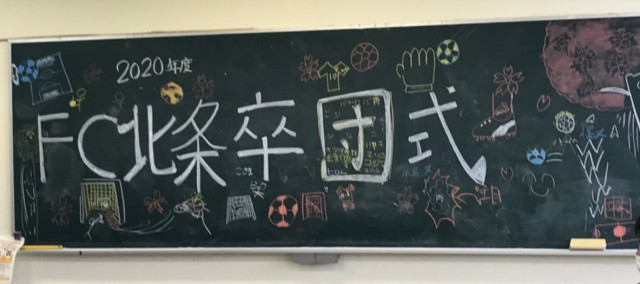 2020年度
FC北条卒団式